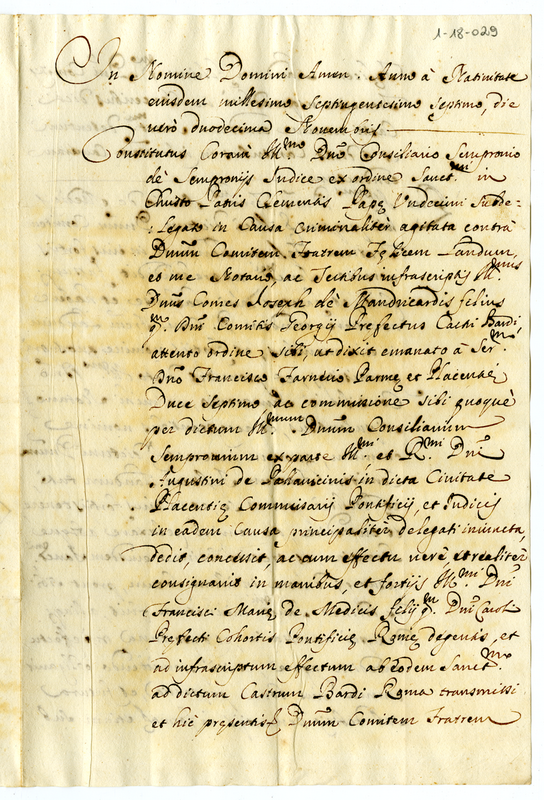 1-18-029
In Nomine Domini Amen. Anno à Nativitate
eiusdem millesimo septingentesimo septimo, die
verò duodecima Novembris
Constitutus Coram Ill.mo Dño Consiliario Sempronio
de Sempronijs Iudice ex ordine Sanct.mi in
Christo Patris Clementis Papę Undecimi Subde=
legato in Causa criminaliter agitata contrà
Dñum Comitem Fratrem Landum,
eò me Notario, ac Testibus infrascriptis Ill.mus
Dñus Comes Joseph de Mandricardis filius
q.m Dñi Comitis Georgij Prefectus Castri Bardi,
attento ordine sibi, ut dixit emanato à Ser.mo
Dño Francisco Farnesio Parmę et Placentię
Duce Septimo ac commissione sibi quoquè
per dictum Ill.mum Dñum Consiliarium
Sempronium ex parte Ill.mi et R.mi Dñi
Augustini de Pallavicinis in dicta Civitate
Placentię Commissarij Pontificij, et Iudicis
in eadem Causa principaliter delegati iniuncta,
dedit, concessit, ac cum effectu verè, et realiter
consignavit in manibus, et fortijs Ill.mi Dñi
Francisci Marię de Medicis filij q.m Dñi Caroli
Prefecti Cohortis Pontificię Romę degentis, et
ad infrascriptum effectum ab eodem Sanct.mo
ad dictum Castrum Bardi Roma transmissi
et hic pręsentis Dñum Comitem Fratrem